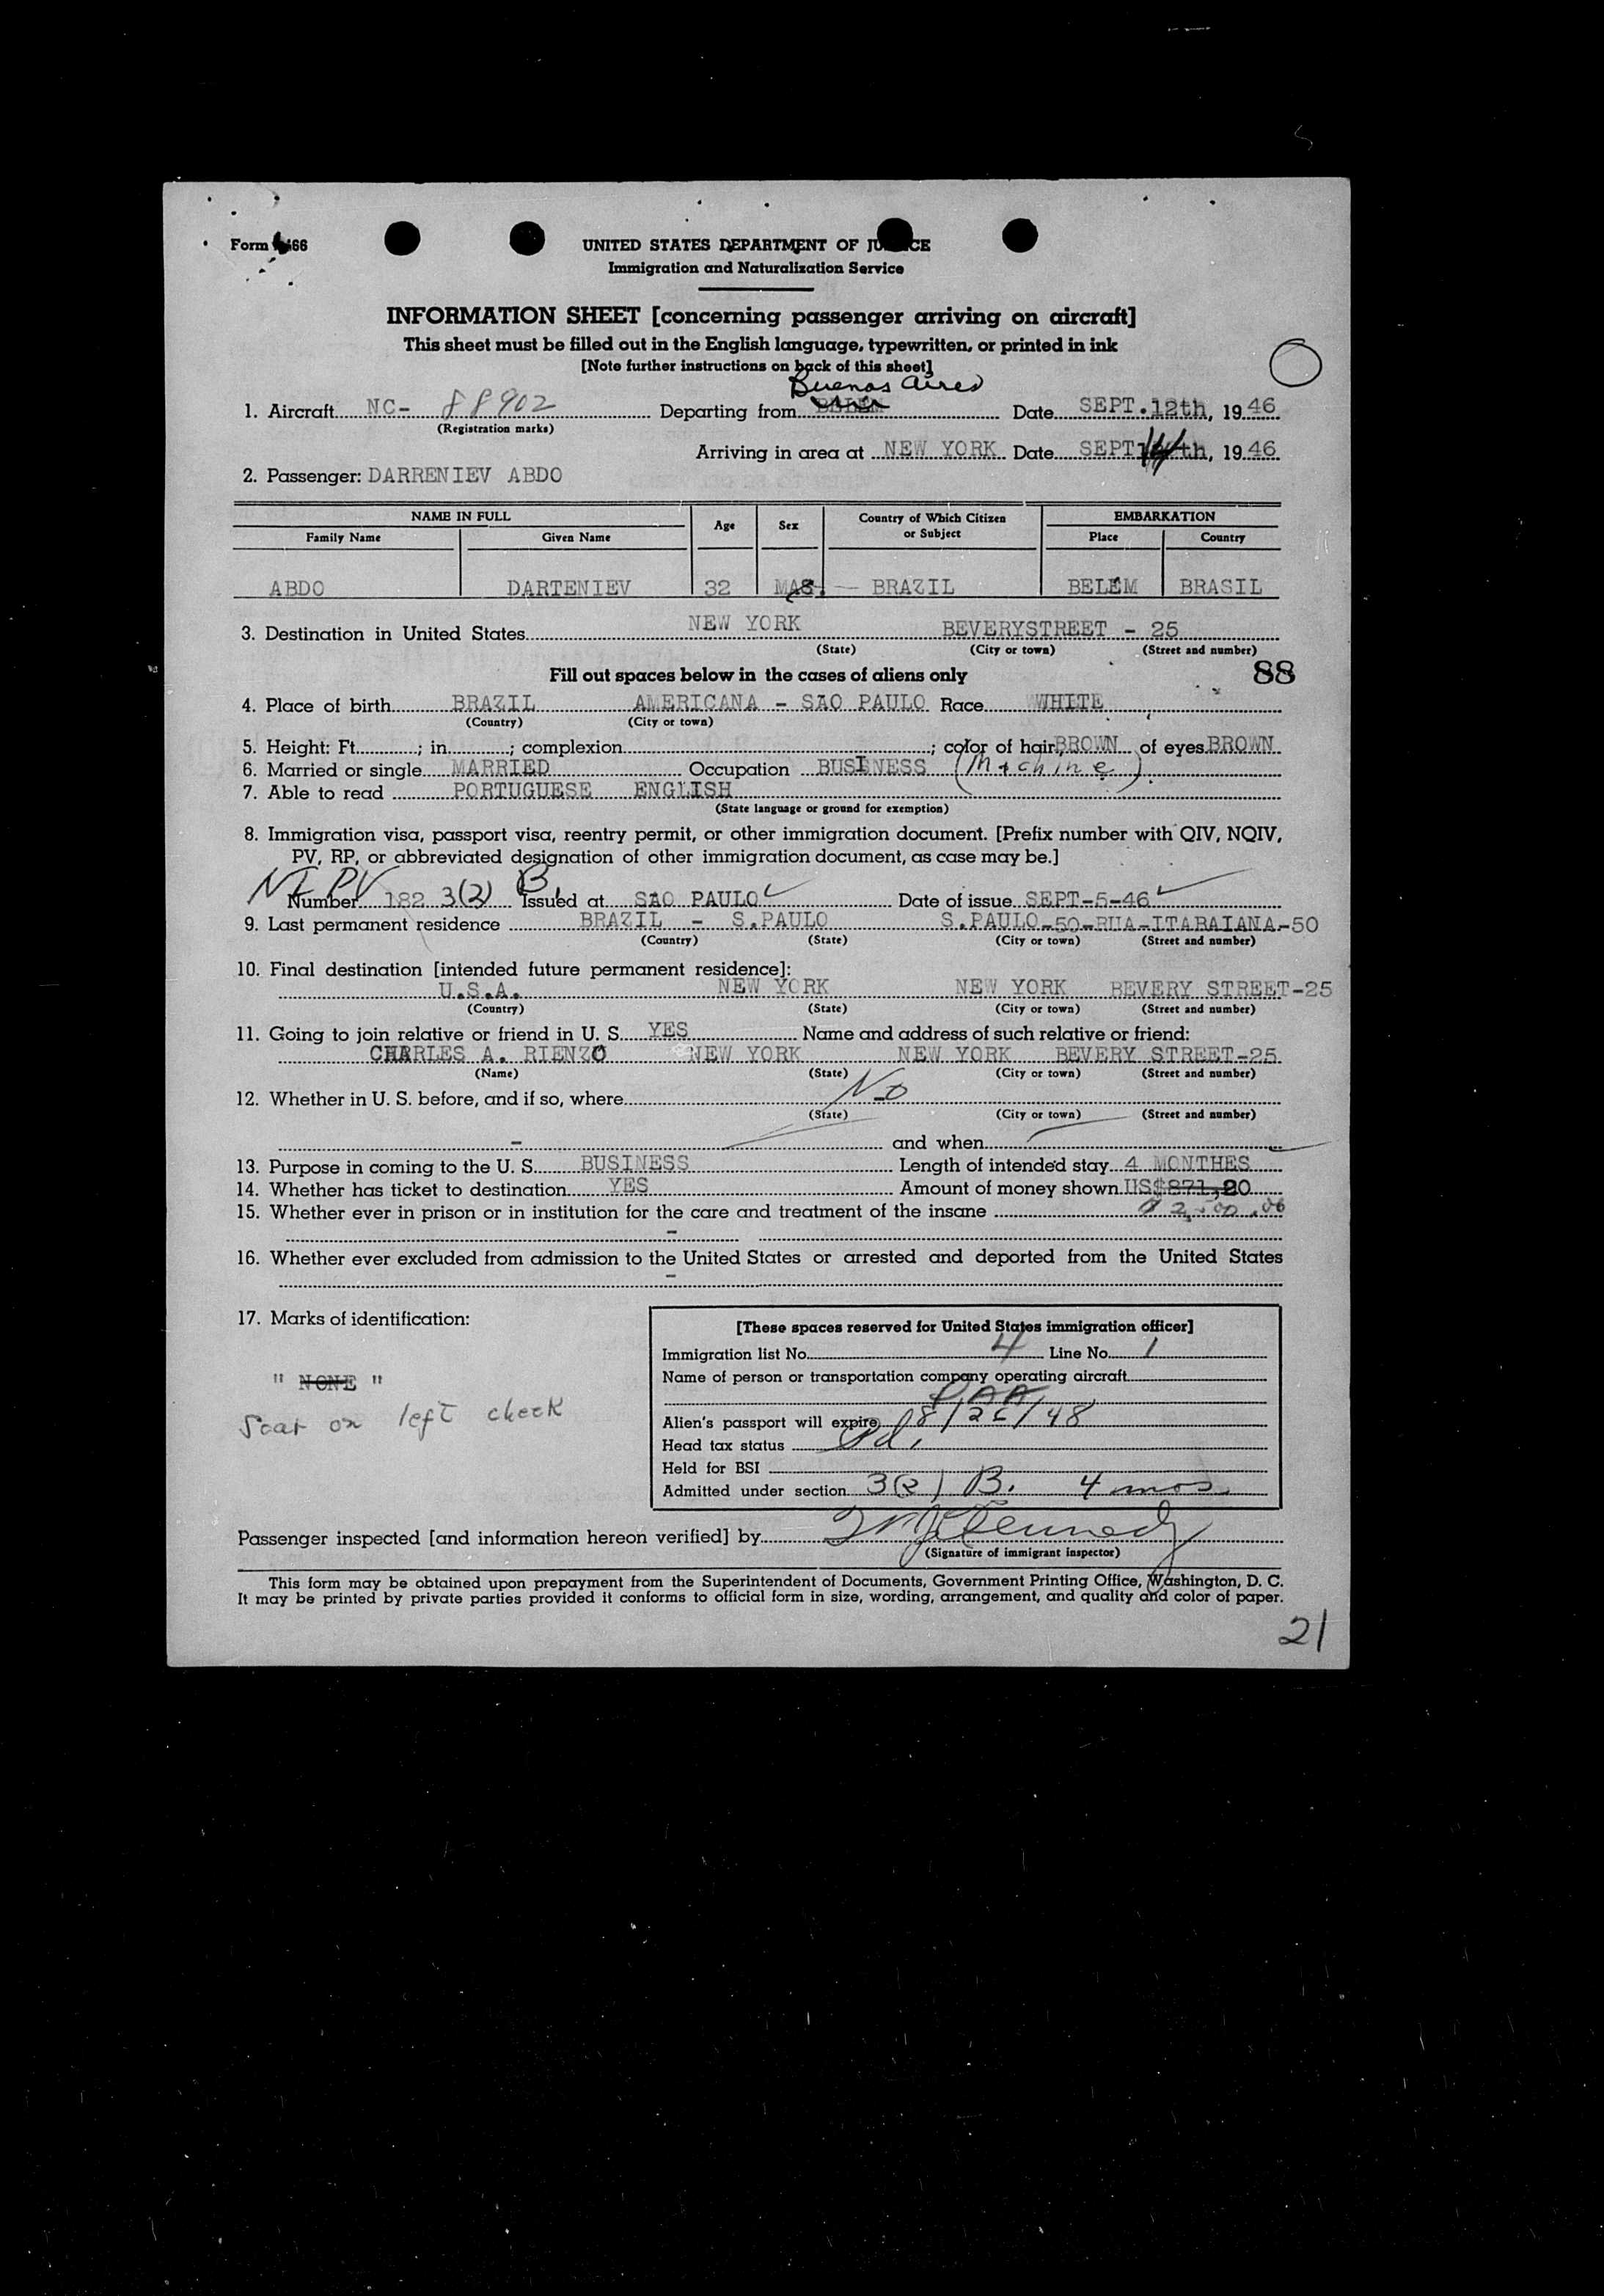 Form I-466
UNITED STATES DEPARTMENT OF JUSTICE
Immigration and Naturalization Service
INFORMATION SHEET [concerning passenger arriving on aircraft]
This sheet must be filled out in the English language, typewritten, or printed in ink
[Note further instructions on back of this sheet]
Buenos Aires
1. Aircraft NC- 88902 Departing from BELEM Date SEPT.12th, 1946
(Registration marks)
Arriving in area at NEW YORK Date SEPT 14th, 1946
2. Passenger: DARRENIEV ABDO
NAME IN FULL Age Sex Country of Which Citizen or Subject EMBARKATION
Family Name Given Name Place Country
ABDO DARTENIEV 32 MAS. - BRAZIL BELÉM BRASIL
3. Destination in United States NEW YORK BEVERYSTREET - 25
(State) (City or town) (Street and number)
Fill out spaces below in the cases of aliens only 88
4. Place of birth BRAZIL AMERICANA - SAO PAULO Race WHITE
(Country) (City or town)
5. Height: Ft. ; in. ; complexion ; color of hair BROWN of eyes BROWN
6. Married or single MARRIED Occupation BUSINESS (Machine)
7. Able to read PORTUGUESE ENGLISH
(State language or ground for exemption)
8. Immigration visa, passport visa, reentry permit, or other immigration document. [Prefix number with QIV, NQIV,
PV, RP, or abbreviated designation of other immigration document, as case may be.]
NI PV Number 182 3(2) B. Issued at SAO PAULO Date of issue SEPT-5-46
9. Last permanent residence BRAZIL - S.PAULO S.PAULO-50-RUA-ITABAIANA-50
(Country) (State) (City or town) (Street and number)
10. Final destination [intended future permanent residence]:
U.S.A. NEW YORK NEW YORK BEVERY STREET-25
(Country) (State) (City or town) (Street and number)
11. Going to join relative or friend in U. S. YES Name and address of such relative or friend:
CHARLES A. RIENZO NEW YORK NEW YORK BEVERY STREET-25
(Name) (State) (City or town) (Street and number)
12. Whether in U. S. before, and if so, where No
(State) (City or town) (Street and number)
- and when
13. Purpose in coming to the U. S. BUSINESS Length of intended stay 4 MONTHES
14. Whether has ticket to destination YES Amount of money shown US$871,20
15. Whether ever in prison or in institution for the care and treatment of the insane
-
16. Whether ever excluded from admission to the United States or arrested and deported from the United States
-
17. Marks of identification:
" NONE "
Scar on left cheek
[These spaces reserved for United States immigration officer]
Immigration list No. 4 Line No. 1
Name of person or transportation company operating aircraft
PAA
Alien's passport will expire 8/26/48
Head tax status Pd.
Held for BSI
Admitted under section 3(2) B. 4 mos
Passenger inspected [and information hereon verified] by Kennedy
(Signature of immigrant inspector)
This form may be obtained upon prepayment from the Superintendent of Documents, Government Printing Office, Washington, D. C.
It may be printed by private parties provided it conforms to official form in size, wording, arrangement, and quality and color of paper.
21